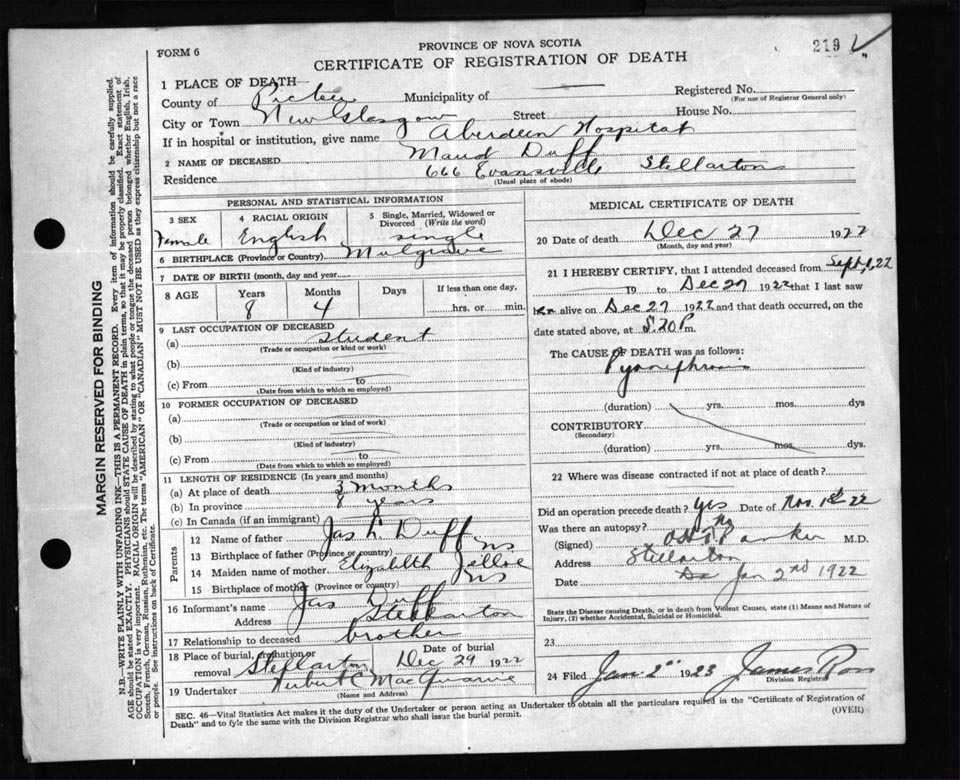 219
FORM 6
PROVINCE OF NOVA SCOTIA
CERTIFICATE OF REGISTRATION OF DEATH
1 PLACE OF DEATH—
County of Pictou Municipality of
Registered No.
(For use of Registrar General only)
City or Town New Glasgow Street House No.
If in hospital or institution, give name Aberdeen Hospital
2 NAME OF DECEASED Maud Duff
Residence 666 Evansville Stellarton
(Usual place of abode)
PERSONAL AND STATISTICAL INFORMATION
3 SEX
Female
4 RACIAL ORIGIN
English
5 Single, Married, Widowed or
Divorced (Write the word)
single
6 BIRTHPLACE (Province or Country) Mulgrave
7 DATE OF BIRTH (month, day and year)
8 AGE Years Months Days If less than one day,
8 4 hrs. or min.
9 LAST OCCUPATION OF DECEASED
(a) student
(Trade or occupation or kind or work)
(b)
(Kind of industry)
(c) From to
(Date from which to which so employed)
10 FORMER OCCUPATION OF DECEASED
(a)
(Trade or occupation or kind of work)
(b)
(Kind of industry)
(c) From to
(Date from which to which so employed)
11 LENGTH OF RESIDENCE (In years and months)
(a) At place of death 3 months
(b) In province 8 years
(c) In Canada (if an immigrant)
Parents
12 Name of father Jas L. Duff
13 Birthplace of father (Province or country) NS
14 Maiden name of mother Elizabeth
15 Birthplace of mother (Province or country) NS
16 Informant's name Jas Duff
Address Stellarton
17 Relationship to deceased brother
18 Place of burial, cremation or
removal Stellarton
Date of burial
Dec 29 1922
19 Undertaker
(Name and Address)
MEDICAL CERTIFICATE OF DEATH
20 Date of death Dec 27 1922
(Month, day and year)
21 I HEREBY CERTIFY, that I attended deceased from Sept 1, 22
19 to Dec 27 1922 that I last saw
her alive on Dec 27 1922 and that death occurred, on the
date stated above, at 8.20 P.m.
The CAUSE OF DEATH was as follows:
Pyonephrosis
(duration) yrs. mos. dys
CONTRIBUTORY
(Secondary)
(duration) yrs. mos. dys.
22 Where was disease contracted if not at place of death?
Did an operation precede death? yes Date of Nov. 1st 22
Was there an autopsy? No
(Signed) Parker M.D.
Address Stellarton
Date Jan 2nd 1922
State the Disease causing Death, or in death from Violent Causes, state (1) Means and Nature of
Injury, (2) whether Accidental, Suicidal or Homicidal.
23
24 Filed Jan 2 1923 James Ross
Division Registrar
SEC. 46—Vital Statistics Act makes it the duty of the Undertaker or person acting as Undertaker to obtain all the particulars required in the "Certificate of Registration of
Death" and to fyle the same with the Division Registrar who shall issue the burial permit.
(OVER)
MARGIN RESERVED FOR BINDING
N.B.—WRITE PLAINLY WITH UNFADING INK—THIS IS A PERMANENT RECORD. Every item of information should be carefully supplied.
AGE should be stated EXACTLY. PHYSICIANS should STATE CAUSE OF DEATH in plain terms, so that it may be properly classified. Exact statement of
OCCUPATION is very important. RACIAL ORIGIN will be described by stating to what people or tongue the deceased person belonged whether English, Irish,
Scotch, French, German, Russian, Ruthenian, etc. The terms "AMERICAN" OR "CANADIAN" MUST NOT BE USED as they express citizenship but not a race
or people. See instructions on back of Certificate.